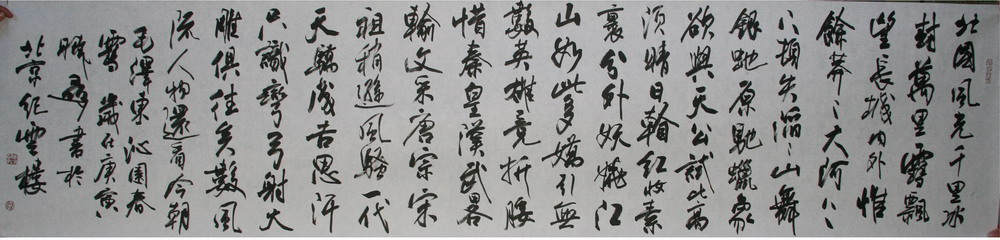 北国风光千里冰
封万里雪飘
望长城内外惟
馀莽〻大河上下
顿失滔〻山舞
银蛇原驰蜡象
欲与天公试比高
须晴日看红妆素
裹分外妖娆江
山如此多娇引无
数英雄竞折腰
惜秦皇汉武略
输文采唐宗宋
祖稍逊风骚一代
天骄成吉思汗
只识弯弓射大
雕俱往矣数风
流人物还看今朝
毛泽东沁园春
雪 岁在庚寅
书于
北京纪云楼